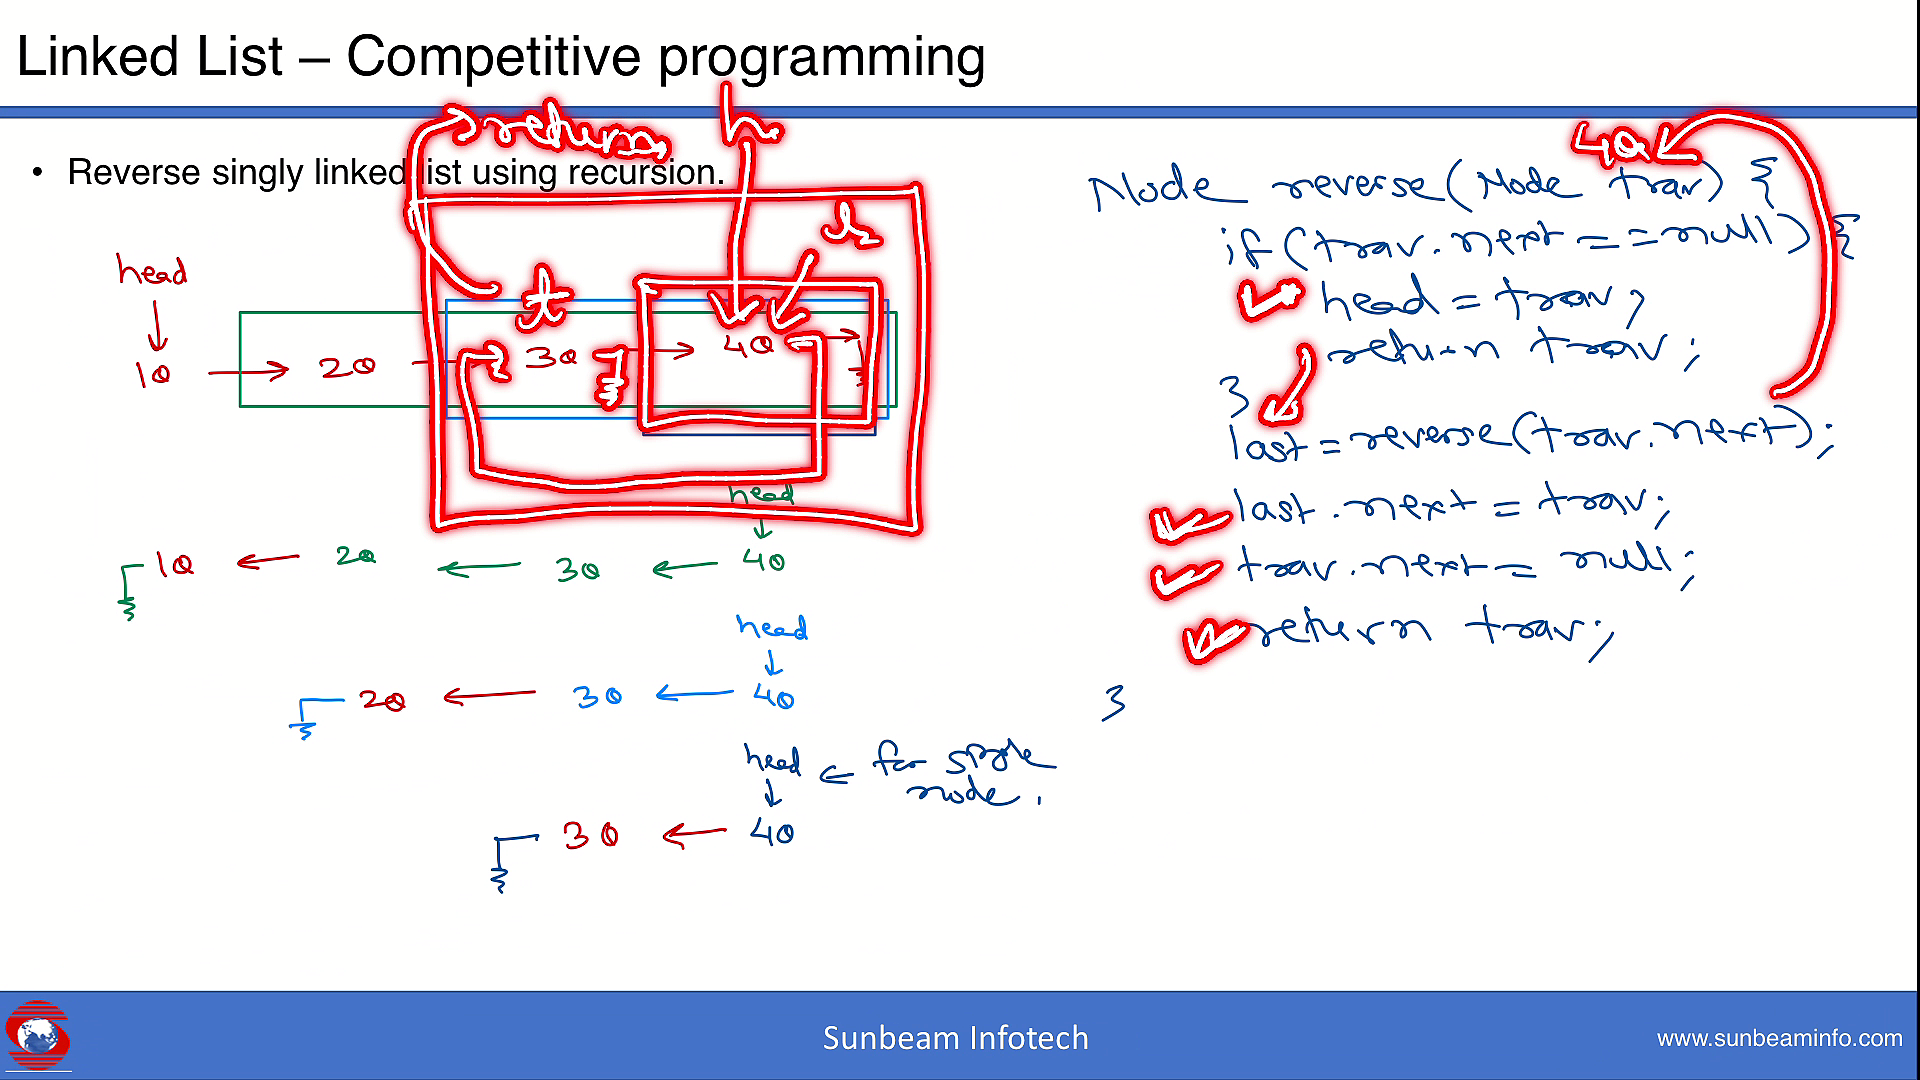 Linked List – Competitive programming
returns h
• Reverse singly linked list using recursion.
l
head
t
10 20 30 40
head
10 20 30 40
head
20 30 40
head ← for single
node.
30 40
40
Node reverse(Node trav) {
if(trav.next==null) {
head = trav;
return trav;
}
last=reverse(trav.next);
last.next = trav;
trav.next = null;
return trav;
}
Sunbeam Infotech
www.sunbeaminfo.com